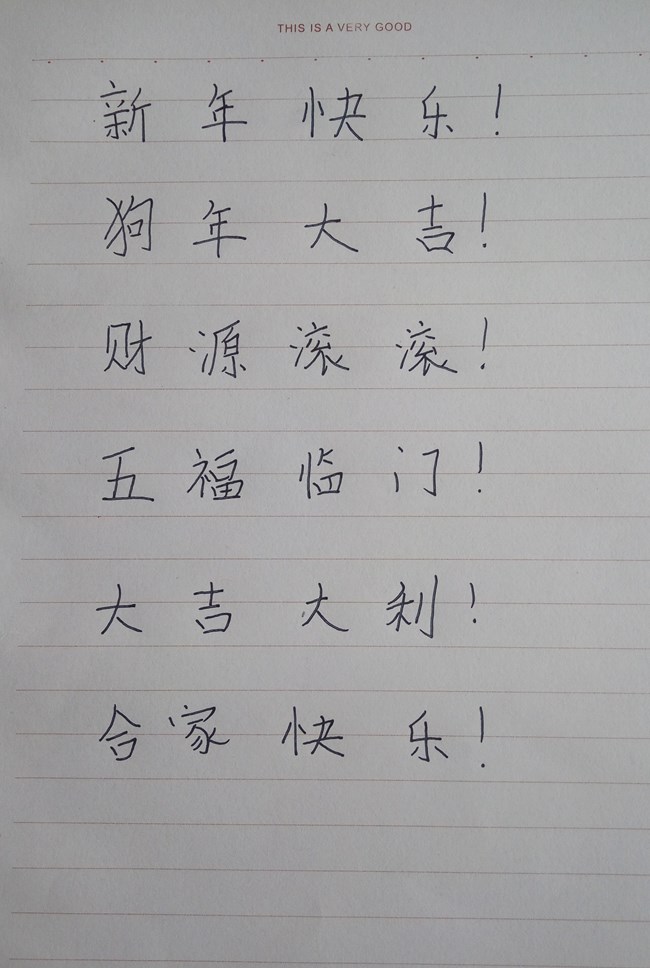 THIS IS A VERY GOOD
新年快乐!
狗年大吉!
财源滚滚!
五福临门!
大吉大利!
合家快乐!